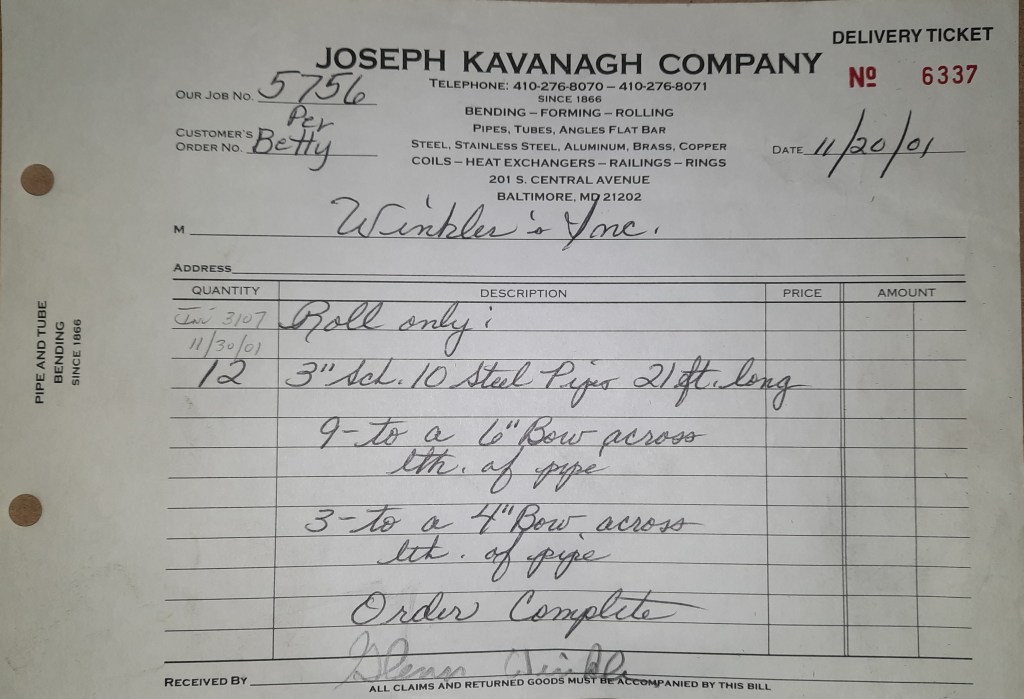 DELIVERY TICKET
JOSEPH KAVANAGH COMPANY
Nº 6337
TELEPHONE: 410-276-8070 – 410-276-8071
SINCE 1866
BENDING – FORMING – ROLLING
PIPES, TUBES, ANGLES FLAT BAR
STEEL, STAINLESS STEEL, ALUMINUM, BRASS, COPPER
COILS – HEAT EXCHANGERS – RAILINGS – RINGS
201 S. CENTRAL AVENUE
BALTIMORE, MD 21202
OUR JOB NO. 5756
CUSTOMER'S ORDER NO. Per Betty
DATE 11/20/01
M Winkler's Inc.
ADDRESS
QUANTITY DESCRIPTION PRICE AMOUNT
Inv 3107 Roll only:
11/30/01
12 3" Sch. 10 Steel Pipes 21 ft. long
9-to a 6" Bow across
lth. of pipe
3-to a 4" Bow across
lth. of pipe
Order Complete
RECEIVED BY Glenn Winkler
ALL CLAIMS AND RETURNED GOODS MUST BE ACCOMPANIED BY THIS BILL
PIPE AND TUBE
BENDING
SINCE 1866